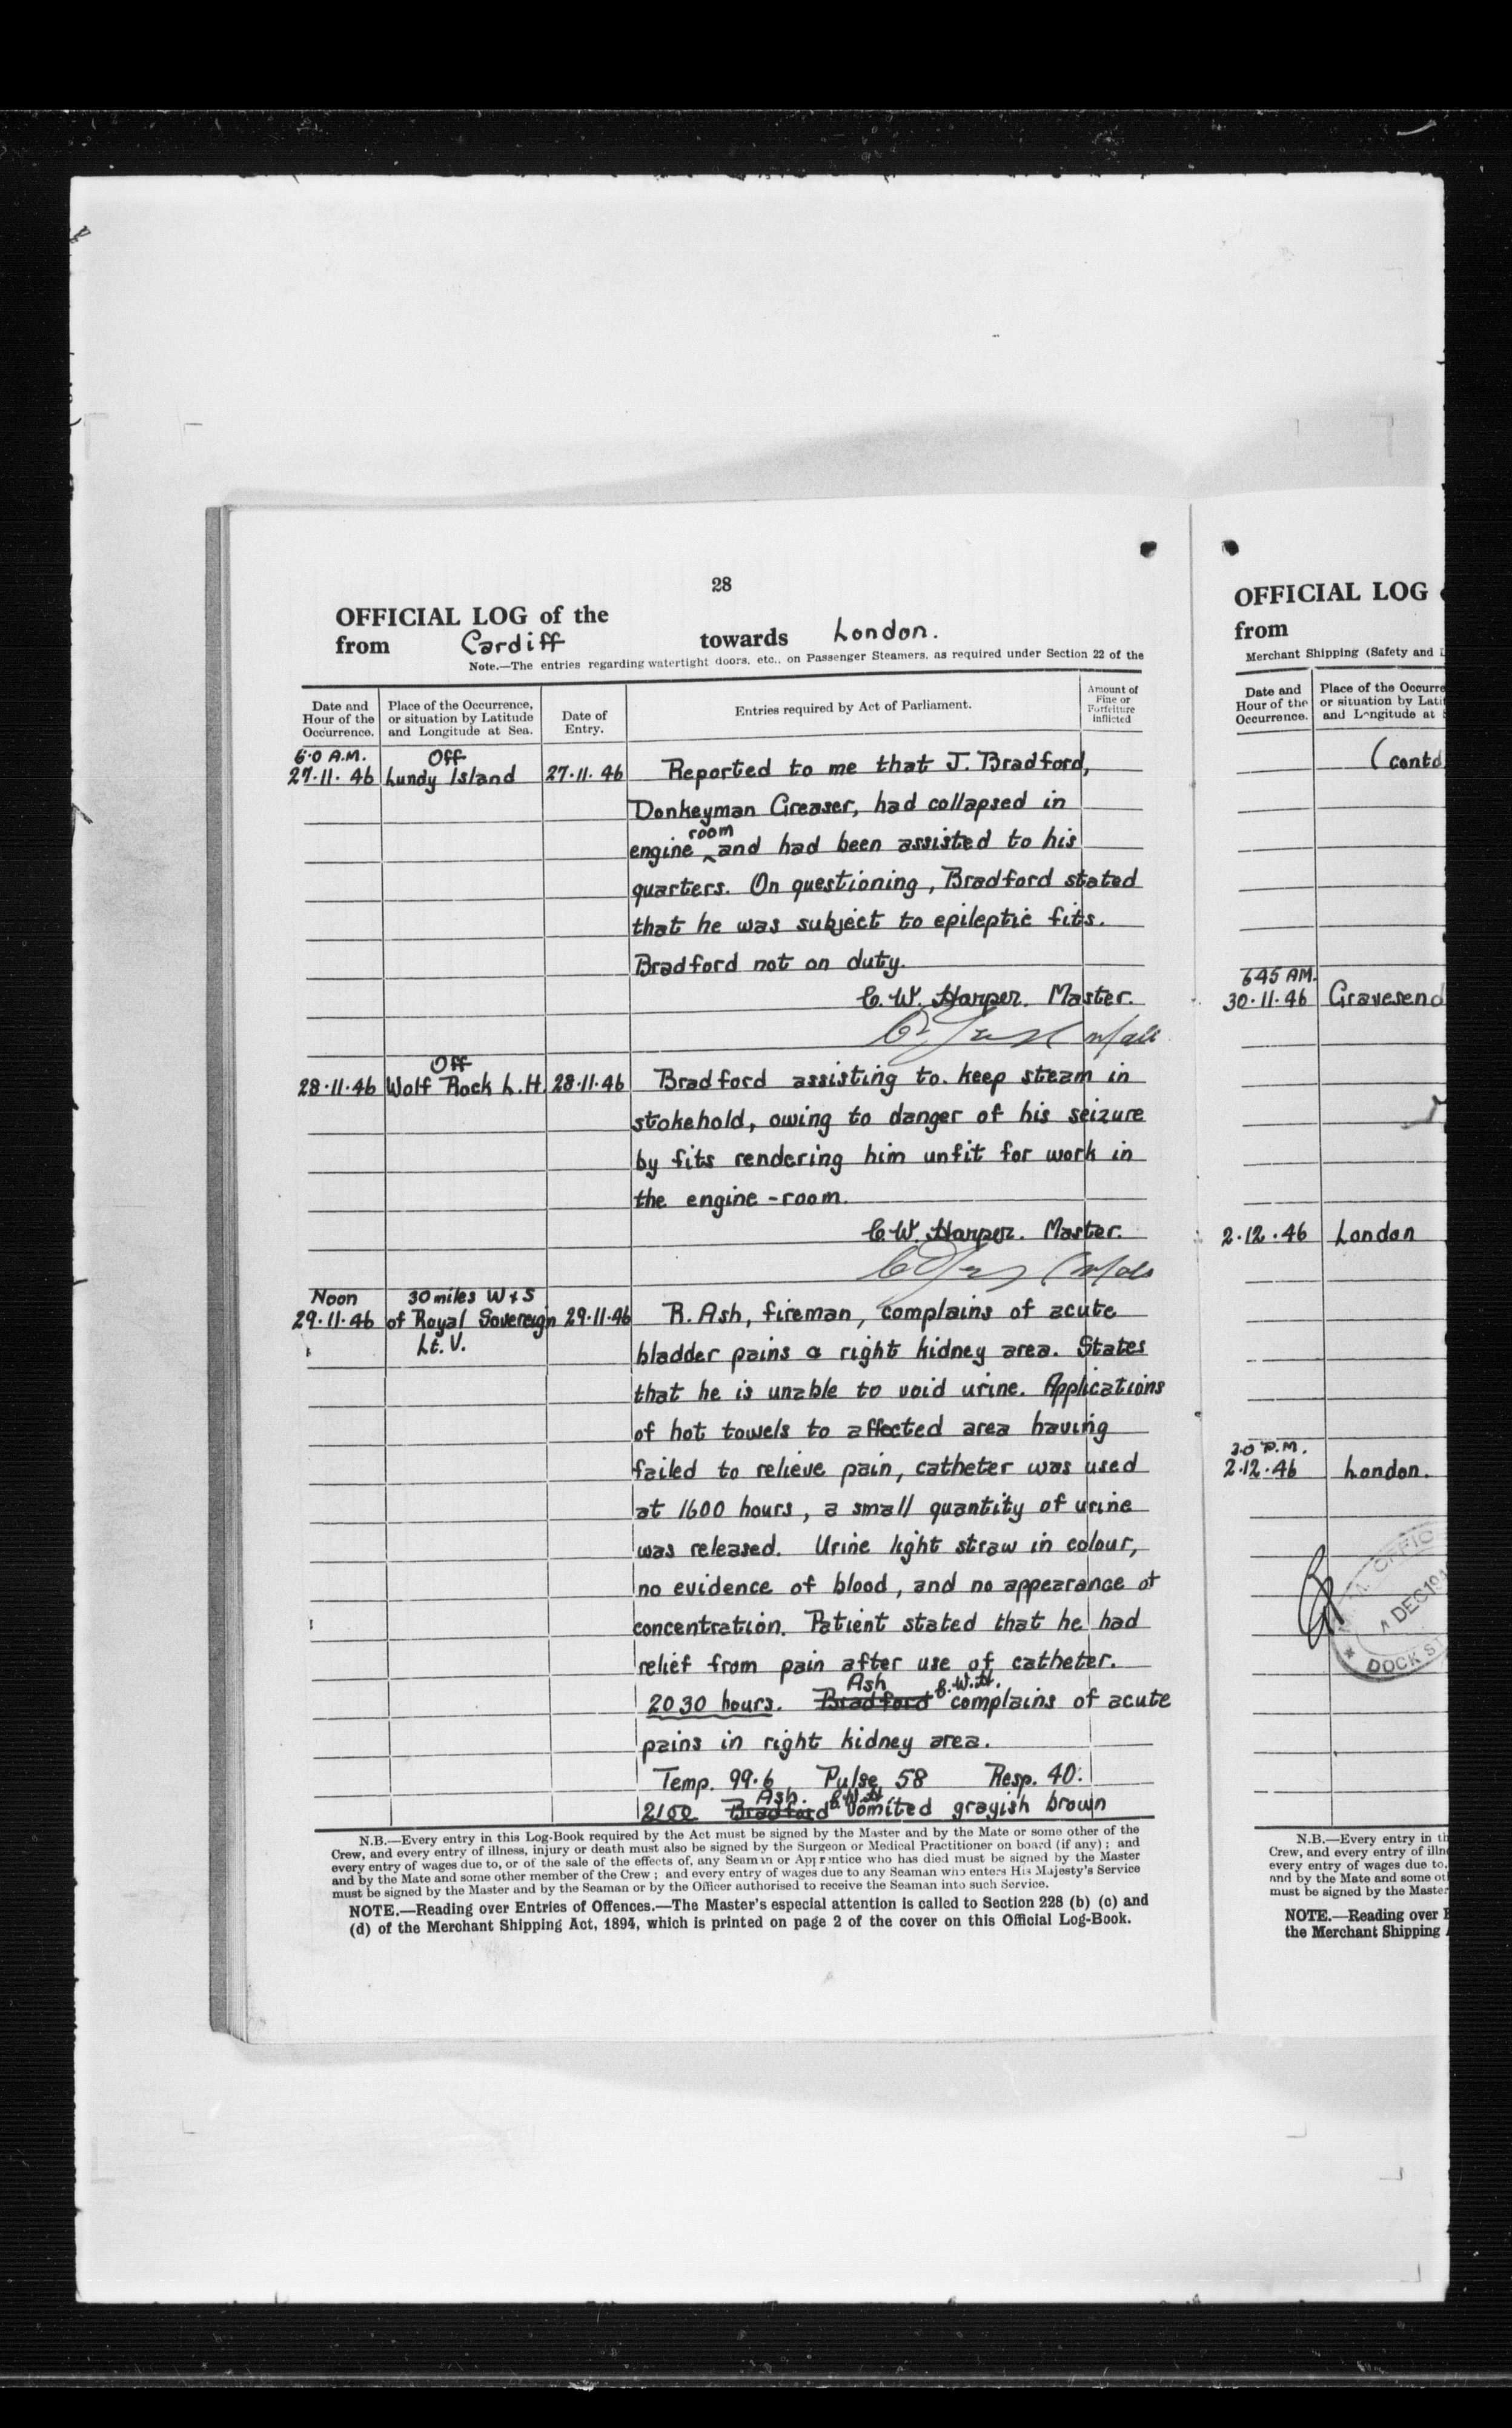 28
OFFICIAL LOG of the
from Cardiff towards London.
Note.—The entries regarding watertight doors, etc., on Passenger Steamers, as required under Section 22 of the
Date and Hour of the Occurrence.
Place of the Occurrence, or situation by Latitude and Longitude at Sea.
Date of Entry.
Entries required by Act of Parliament.
Amount of Fine or Forfeiture inflicted
6·0 A.M. Off
27·11·46 Lundy Island 27·11·46 Reported to me that J. Bradford,
Donkeyman Greaser, had collapsed in
room
engine ‸and had been assisted to his
quarters. On questioning, Bradford stated
that he was subject to epileptic fits.
Bradford not on duty.
C.W. Harper. Master.
Off
28·11·46 Wolf Rock L.H. 28·11·46 Bradford assisting to. keep steam in
stokehold, owing to danger of his seizure
by fits rendering him unfit for work in
the engine-room.
C.W. Harper. Master.
Noon 30 miles W x S
29·11·46 of Royal Sovereign 29·11·46 R. Ash, fireman, complains of acute
Lt. V.
bladder pains a right kidney area. States
that he is unable to void urine. Applications
of hot towels to affected area having
failed to relieve pain, catheter was used
at 1600 hours, a small quantity of urine
was released. Urine light straw in colour,
no evidence of blood, and no appearance of
concentration. Patient stated that he had
relief from pain after use of catheter.
Ash C.W.H.
2030 hours. Bradford complains of acute
pains in right kidney area.
Temp. 99·6 Pulse 58 Resp. 40.
Ash. C.W.H
2100 Bradford vomited grayish brown
N.B.—Every entry in this Log-Book required by the Act must be signed by the Master and by the Mate or some other of the
Crew, and every entry of illness, injury or death must also be signed by the Surgeon or Medical Practitioner on board (if any); and
every entry of wages due to, or of the sale of the effects of, any Seaman or Apprentice who has died must be signed by the Master
and by the Mate and some other member of the Crew; and every entry of wages due to any Seaman who enters His Majesty's Service
must be signed by the Master and by the Seaman or by the Officer authorised to receive the Seaman into such Service.
NOTE.—Reading over Entries of Offences.—The Master's especial attention is called to Section 228 (b) (c) and
(d) of the Merchant Shipping Act, 1894, which is printed on page 2 of the cover on this Official Log-Book.
OFFICIAL LOG
from
Merchant Shipping (Safety and
Date and Hour of the Occurrence.
Place of the Occurre
or situation by Lati
and Longitude at
(contd
6 45 AM.
30·11·46 Gravesend
2·12·46 London
2·12·46 London.
DEC 194
DOCK ST
N.B.—Every entry in th
Crew, and every entry of illne
every entry of wages due to,
and by the Mate and some ot
must be signed by the Master
NOTE.—Reading over
the Merchant Shipping